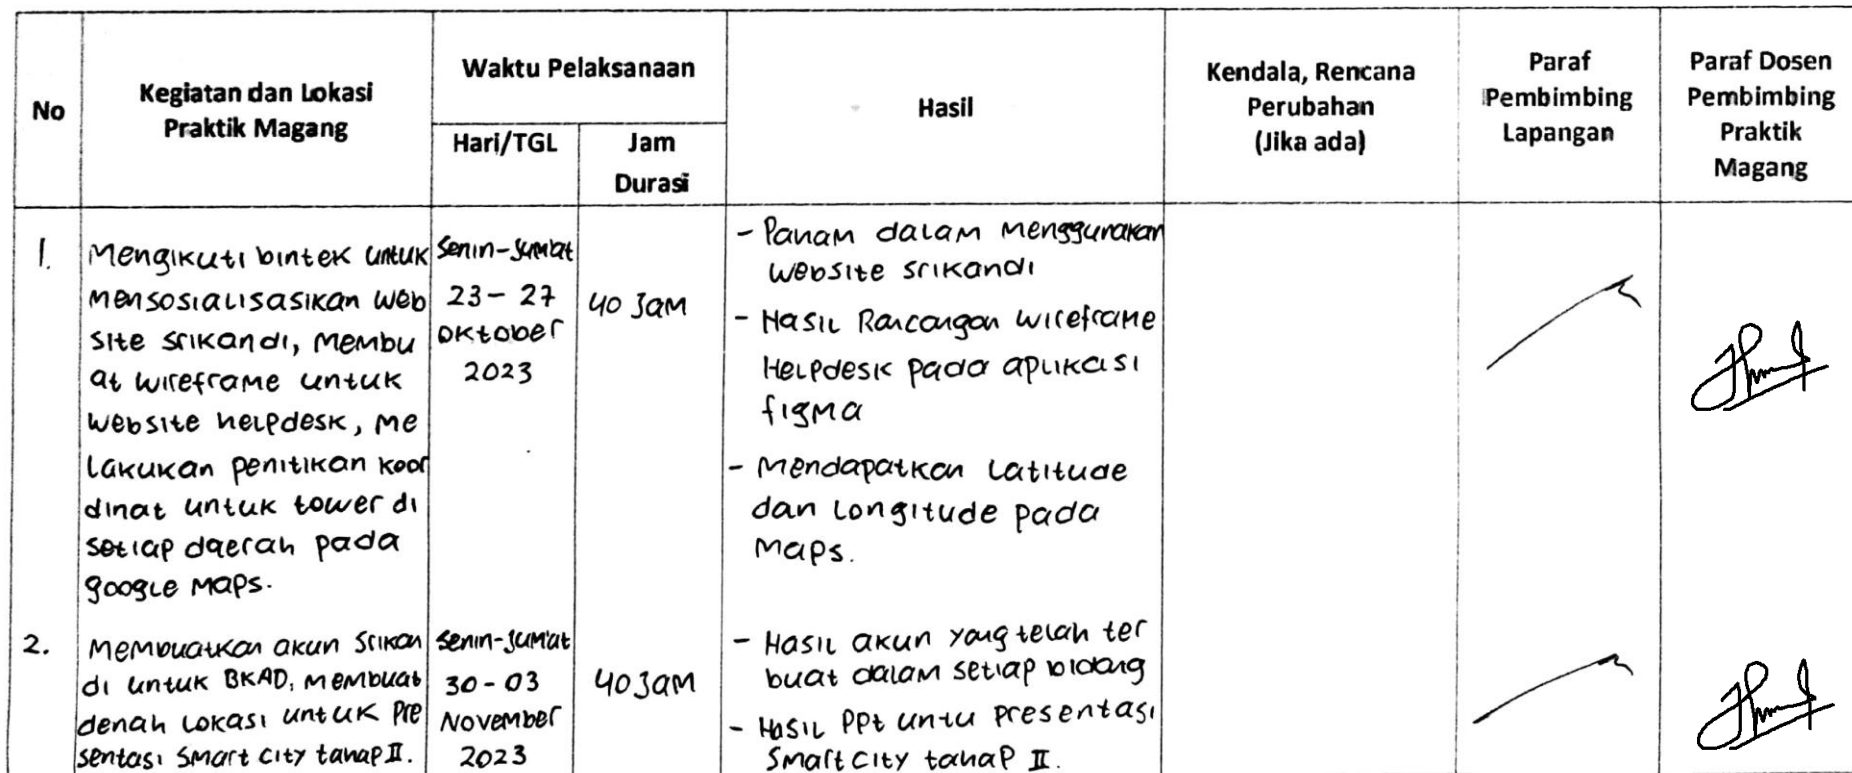 No
Kegiatan dan Lokasi
Praktik Magang
Waktu Pelaksanaan
Hari/TGL
Jam
Durasi
Hasil
Kendala, Rencana
Perubahan
(Jika ada)
Paraf
Pembimbing
Lapangan
Paraf Dosen
Pembimbing
Praktik
Magang
1.
Mengikuti bintek untuk
mensosialisasikan web
site srikandi, membu
at wireframe untuk
website helpdesk, me
lakukan penitikan koor
dinat untuk tower di
setiap daerah pada
google maps.
Senin-Jumat
23-27
Oktober
2023
40 Jam
- Paham dalam menggunakan
website srikandi
- Hasil Rancangan wireframe
Helpdesk pada aplikasi
figma
- Mendapatkan Latitude
dan Longitude pada
Maps.
2.
Membuatkan akun Srikan
di untuk BKAD, membuat
denah lokasi untuk Pre
sentasi Smart City tahap II.
Senin-Jum'at
30-03
November
2023
40 Jam
- Hasil akun yang telah ter
buat dalam setiap bidang
- Hasil PPt untu presentasi
Smart City tahap II.